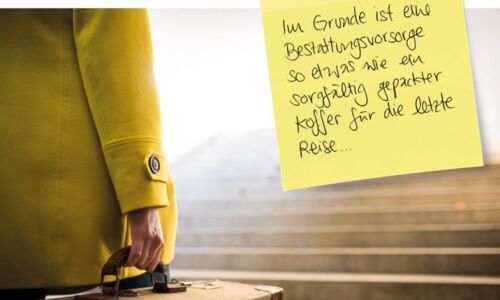 Im Grunde ist eine
Bestattungsvorsorge
so etwas wie ein
sorgfältig gepackter
Koffer für die letzte
Reise...